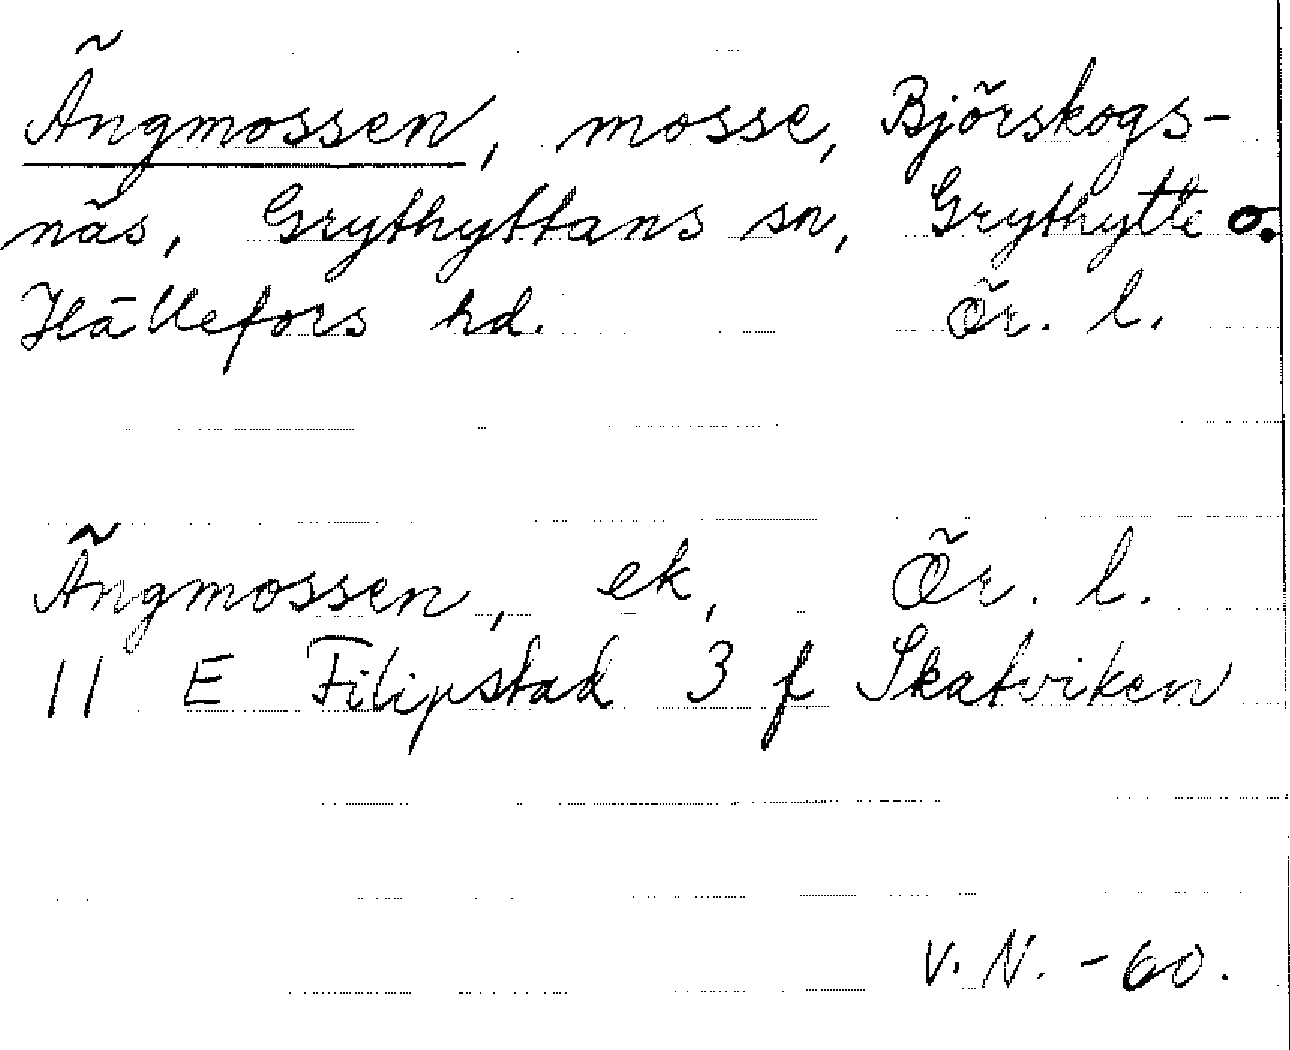 Ängmossen, mosse, Björskogs-
näs, Grythyttans sn, Grythytte o.
Hällefors hd. Ör. l.
Ängmossen, ek, Ör. l.
11 E Filipstad 3 f Skatviken
V. N. -60.